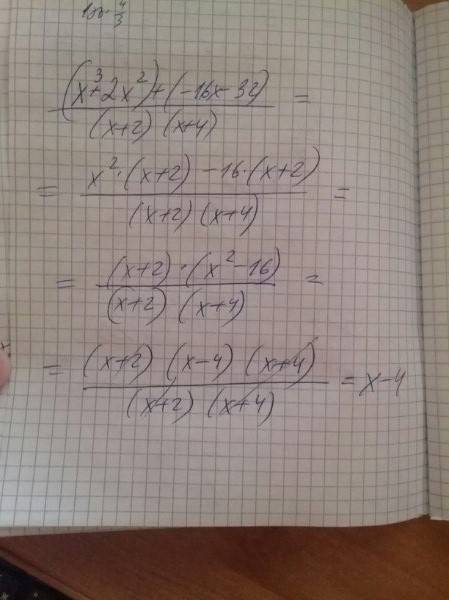 4/3
((x³+2x²)+(-16x-32))/((x+2)(x+4)) =
= (x²·(x+2)-16·(x+2))/((x+2)(x+4)) =
= ((x+2)·(x²-16))/((x+2)(x+4)) =
= ((x+2)(x-4)(x+4))/((x+2)(x+4)) = x-4